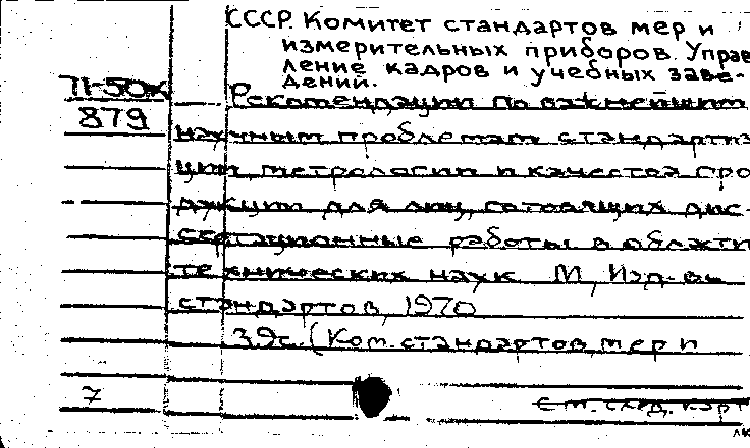 СССР. Комитет стандартов мер и
измерительных приборов. Управ
ление кадров и учебных заве-
дений.
71-50к
879
Рекомендации по важнейшим
научным проблемам стандартиза
ции, метрологии и качества про
дукции для лиц, готовящих дис-
сертационные работы в области
технических наук М, Изд-во
стандартов, 1970
39с. (Ком. стандартов, мер и
7
см. след. карт